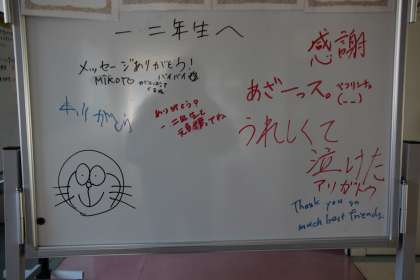 一二年生へ
メッセージありがとう!
MIKOTO
バイバイ
ありがとう
ありがとう?
一二年生も
感謝
あざーっス。
(--)
うれしくて
泣けた
アリガとう
Thank you so
much best friends.